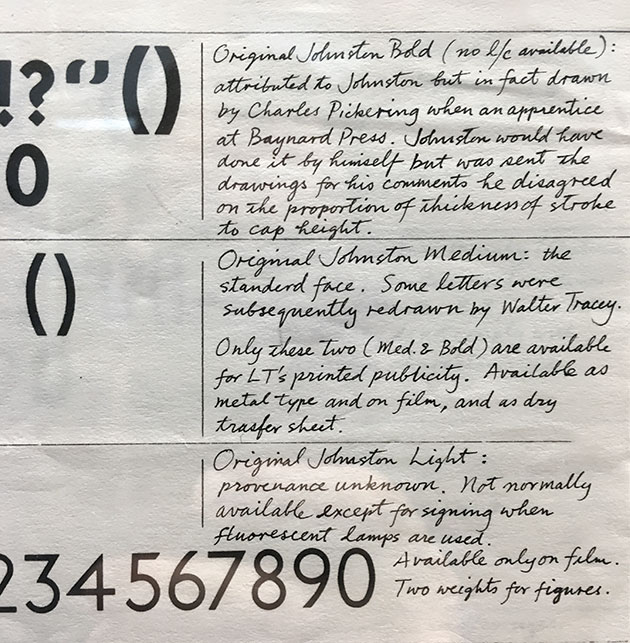 !?“”()
0
Original Johnston Bold (no l/c available):
attributed to Johnston but in fact drawn
by Charles Pickering when an apprentice
at Baynard Press. Johnston would have
done it by himself but was sent the
drawings for his comments he disagreed
on the proportion of thickness of stroke
to cap height.
()
Original Johnston Medium: the
standerd face. Some letters were
subsequently redrawn by Walter Tracey.
Only these two (Med. & Bold) are available
for LT's printed publicity. Available as
metal type and on film, and as dry
trasfer sheet.
Original Johnston Light:
provenance unknown. Not normally
available except for signing when
fluorescent lamps are used.
234567890
Available only on film.
Two weights for figures.